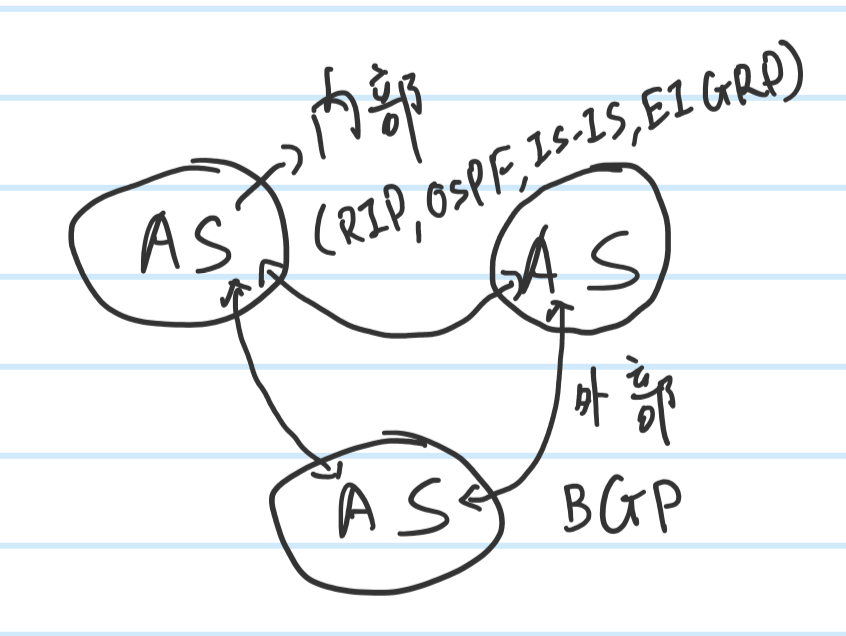 内部
(RIP, OSPF, IS-IS, EIGRP)
AS
AS
外部
AS
BGP